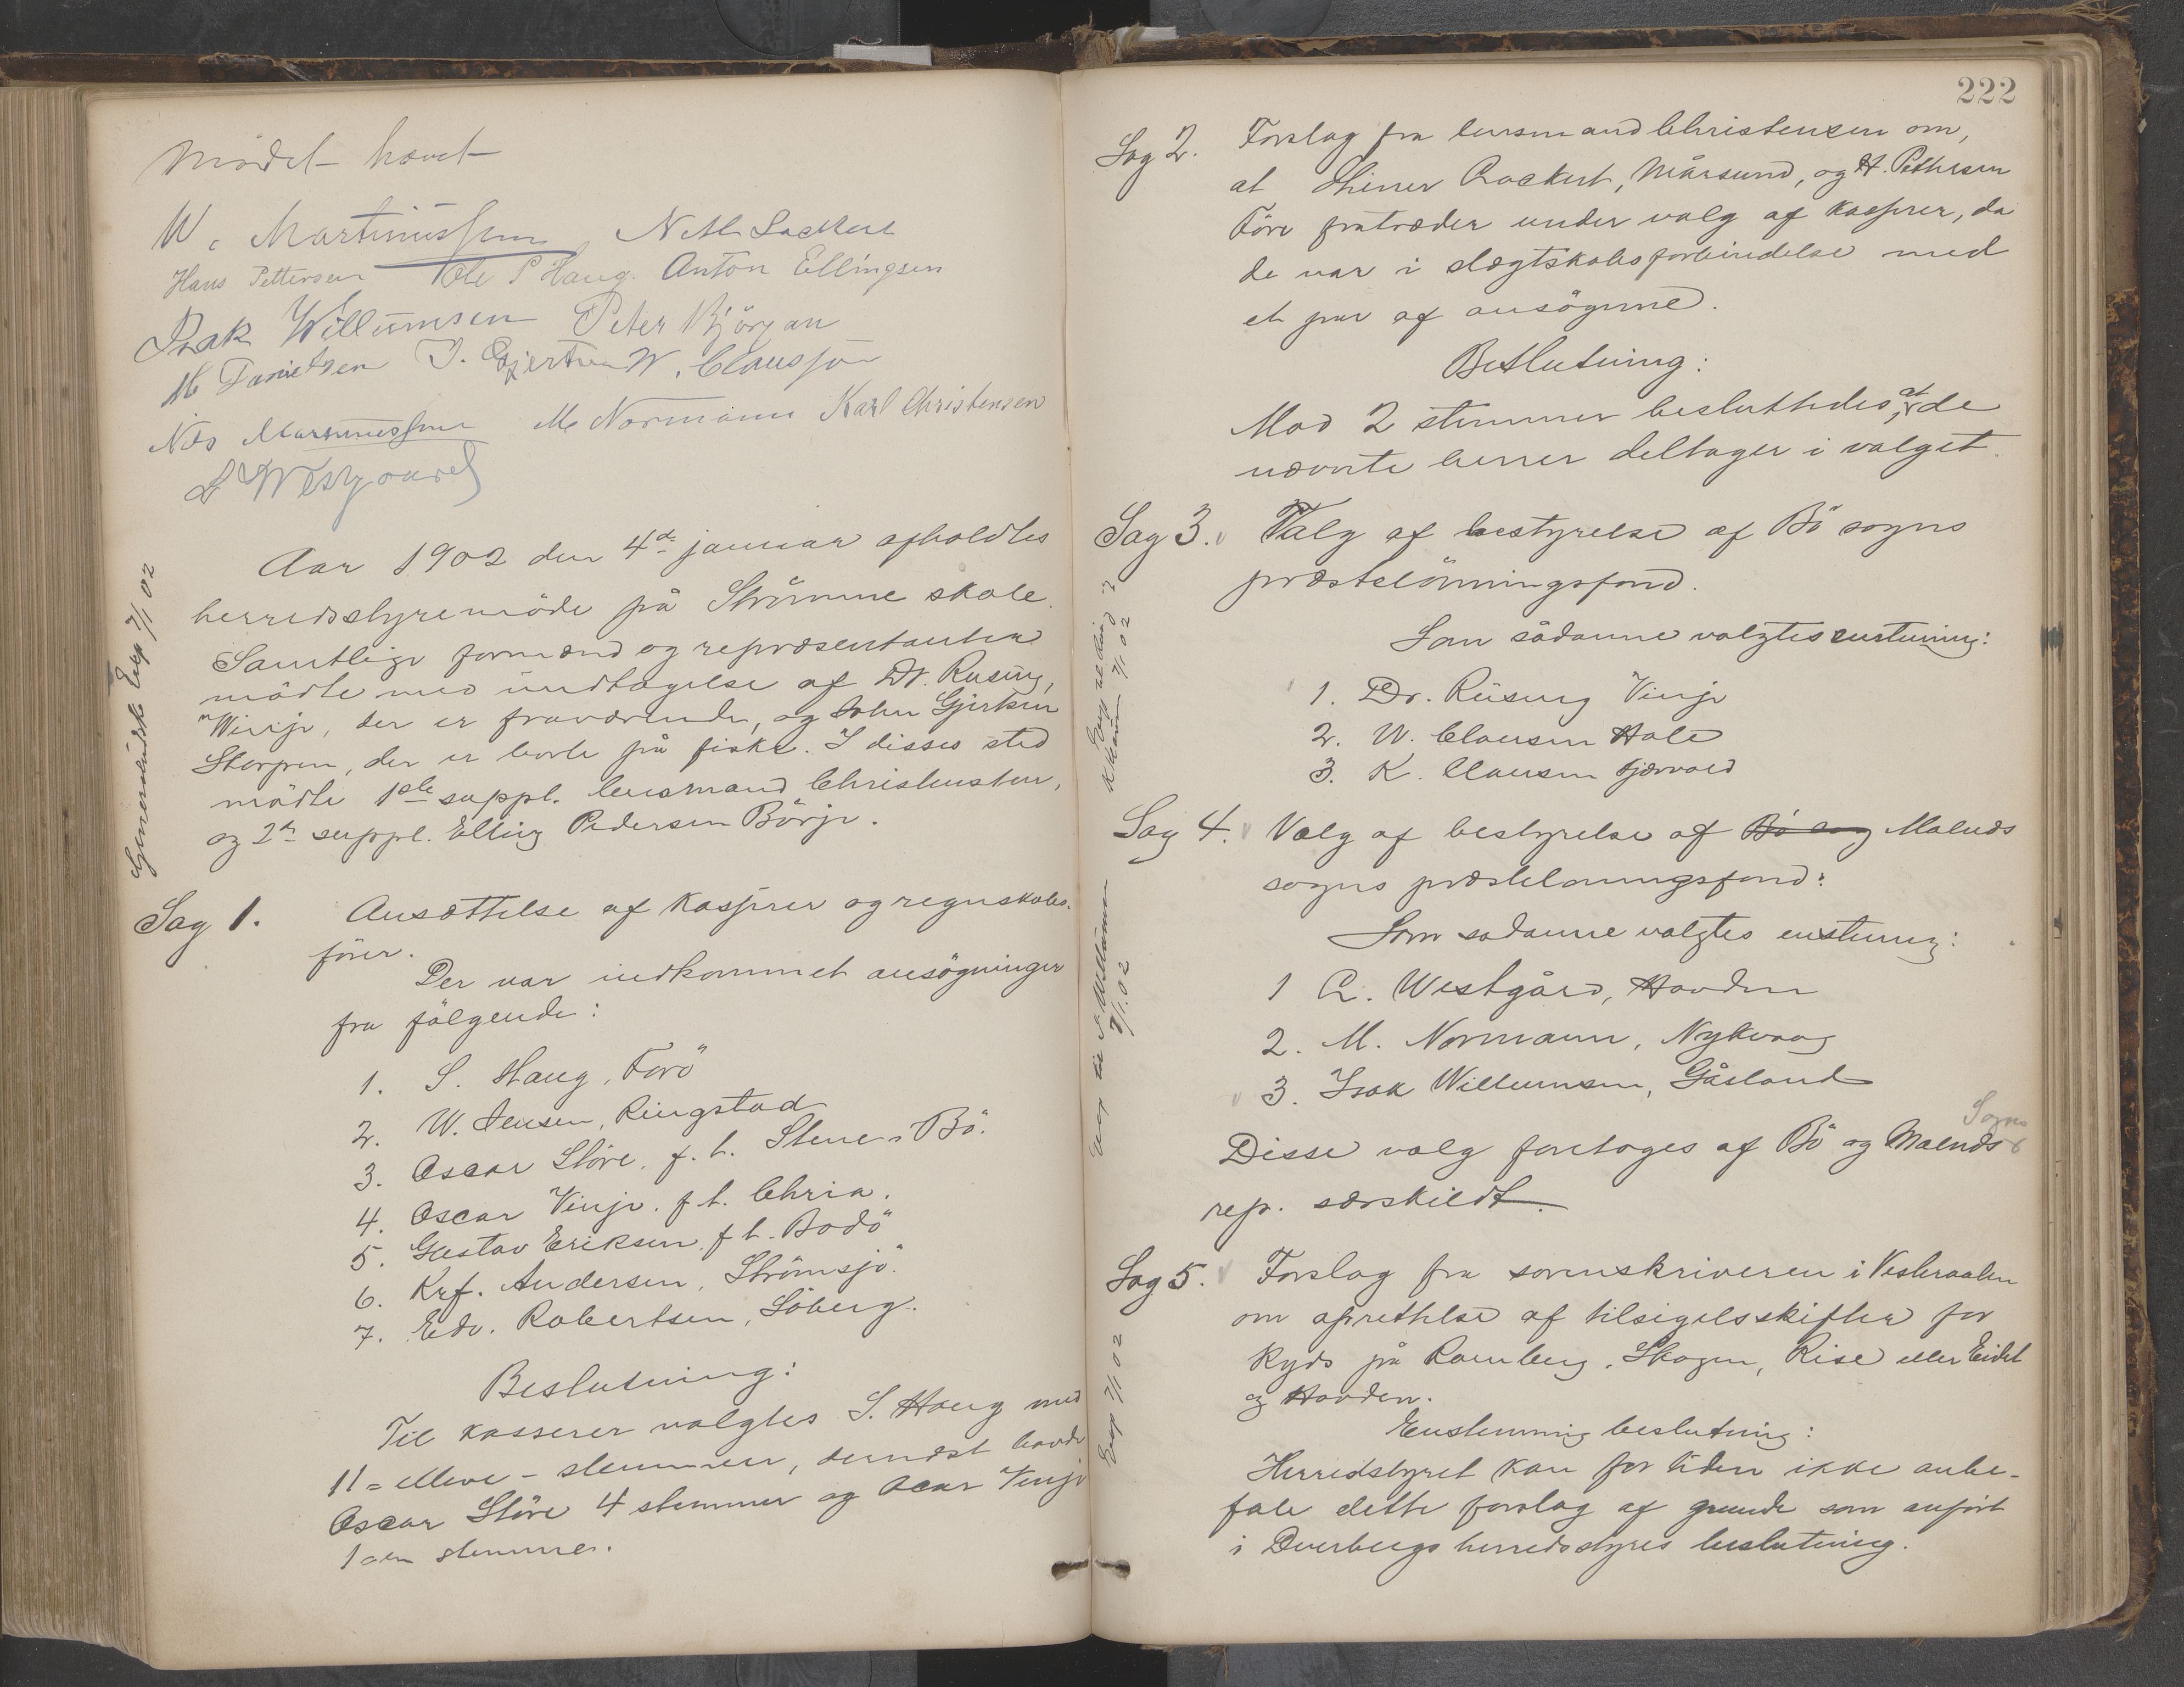 Mödet hævet
W. Martinussen
Hans Pettersen Ole P Haug. Anton Ellingsen
Isak Willumsen Peter Björgan
M Danielsen J. Gjertsen W. Claussen
Nils Martinussen M Normann Karl Christensen
Westgaard
Aar 1902 den 4de januar afholdtes
herredsstyremöde på Strömme skole.
Samtlige formænd og repræsentanter
mödte med undtagelse af Dr. Rusing,
Winje, der er fraværende, og John Gjertsen
Skorpen, der er borte på fiske. I disses sted
mödte 1ste suppl. lensmand Christensen,
og 2den suppl. Elling Pedersen Börje.
Sag 1. Ansættelse af kasserer og regnskabs-
förer.
Der var indkommet ansögninger
fra fölgende:
1. S. Haug, Förö
2. W. Jensen, Ringstad
3. Oscar Störe, f. t. Steine i Bö.
4. Oscar Vinje. f. t. Chria.
5. Gustav Eriksen f t. Bodö
6. Krf. Andersen, Strömsjö.
7. Edv. Robertsen, Söberg.
Beslutning:
Til kasserer valgtes S. Haug med
11 - elleve - stemmer, dernæst havde
Oscar Störe 4 stemmer og Oscar Vinje
1 en stemme.
Generalindst. Exp 7/1 02
222
Sag 2. Forslag fra lensmand Christensen om,
at Lockert, Mårsund, og H. Pettersen
Före fratræder under valg af kasserer, da
de var i slægtskabsforbindelse med
et par af ansögerne.
Beslutning:
Mod 2 stemmer besluttedes, at de
nævnte herrer deltager i valget.
Sag 3. Valg af bestyrelse af Bö sogns
præstelönningsfond.
Som sådanne valgtes enstemmig:
1. Dr. Rüsing Vinje
2. W. Clausen Hole
3. K. Clausen Fjærvold
Sag 4. Valg af bestyrelse af Bö sog Malnes
sogns præstelønningsfond:
Som sadanne valgtes enstemmig:
1 A. Westgård, Hovden
2. M. Normann, Nykvaag
3. Isak Willumsen, Gåsland
Sogns
Disse valg foretoges af Bö og Malnes
rep. særskildt.
Sag 5. Forslag fra sorenskriveren i Vesteraalen
om oprettelse af tilsigelsskifter for
skyds på Ramberg, Skagen, Rise eller Eidet
og Hovden.
Enstemmig beslutning:
Herredstyret kan for tiden ikke anbe-
fale dette forslag af grunde som anført
i Dverbergs herredsstyres beslutning.
7/1 02
7/1.02
Exp 7/1 02